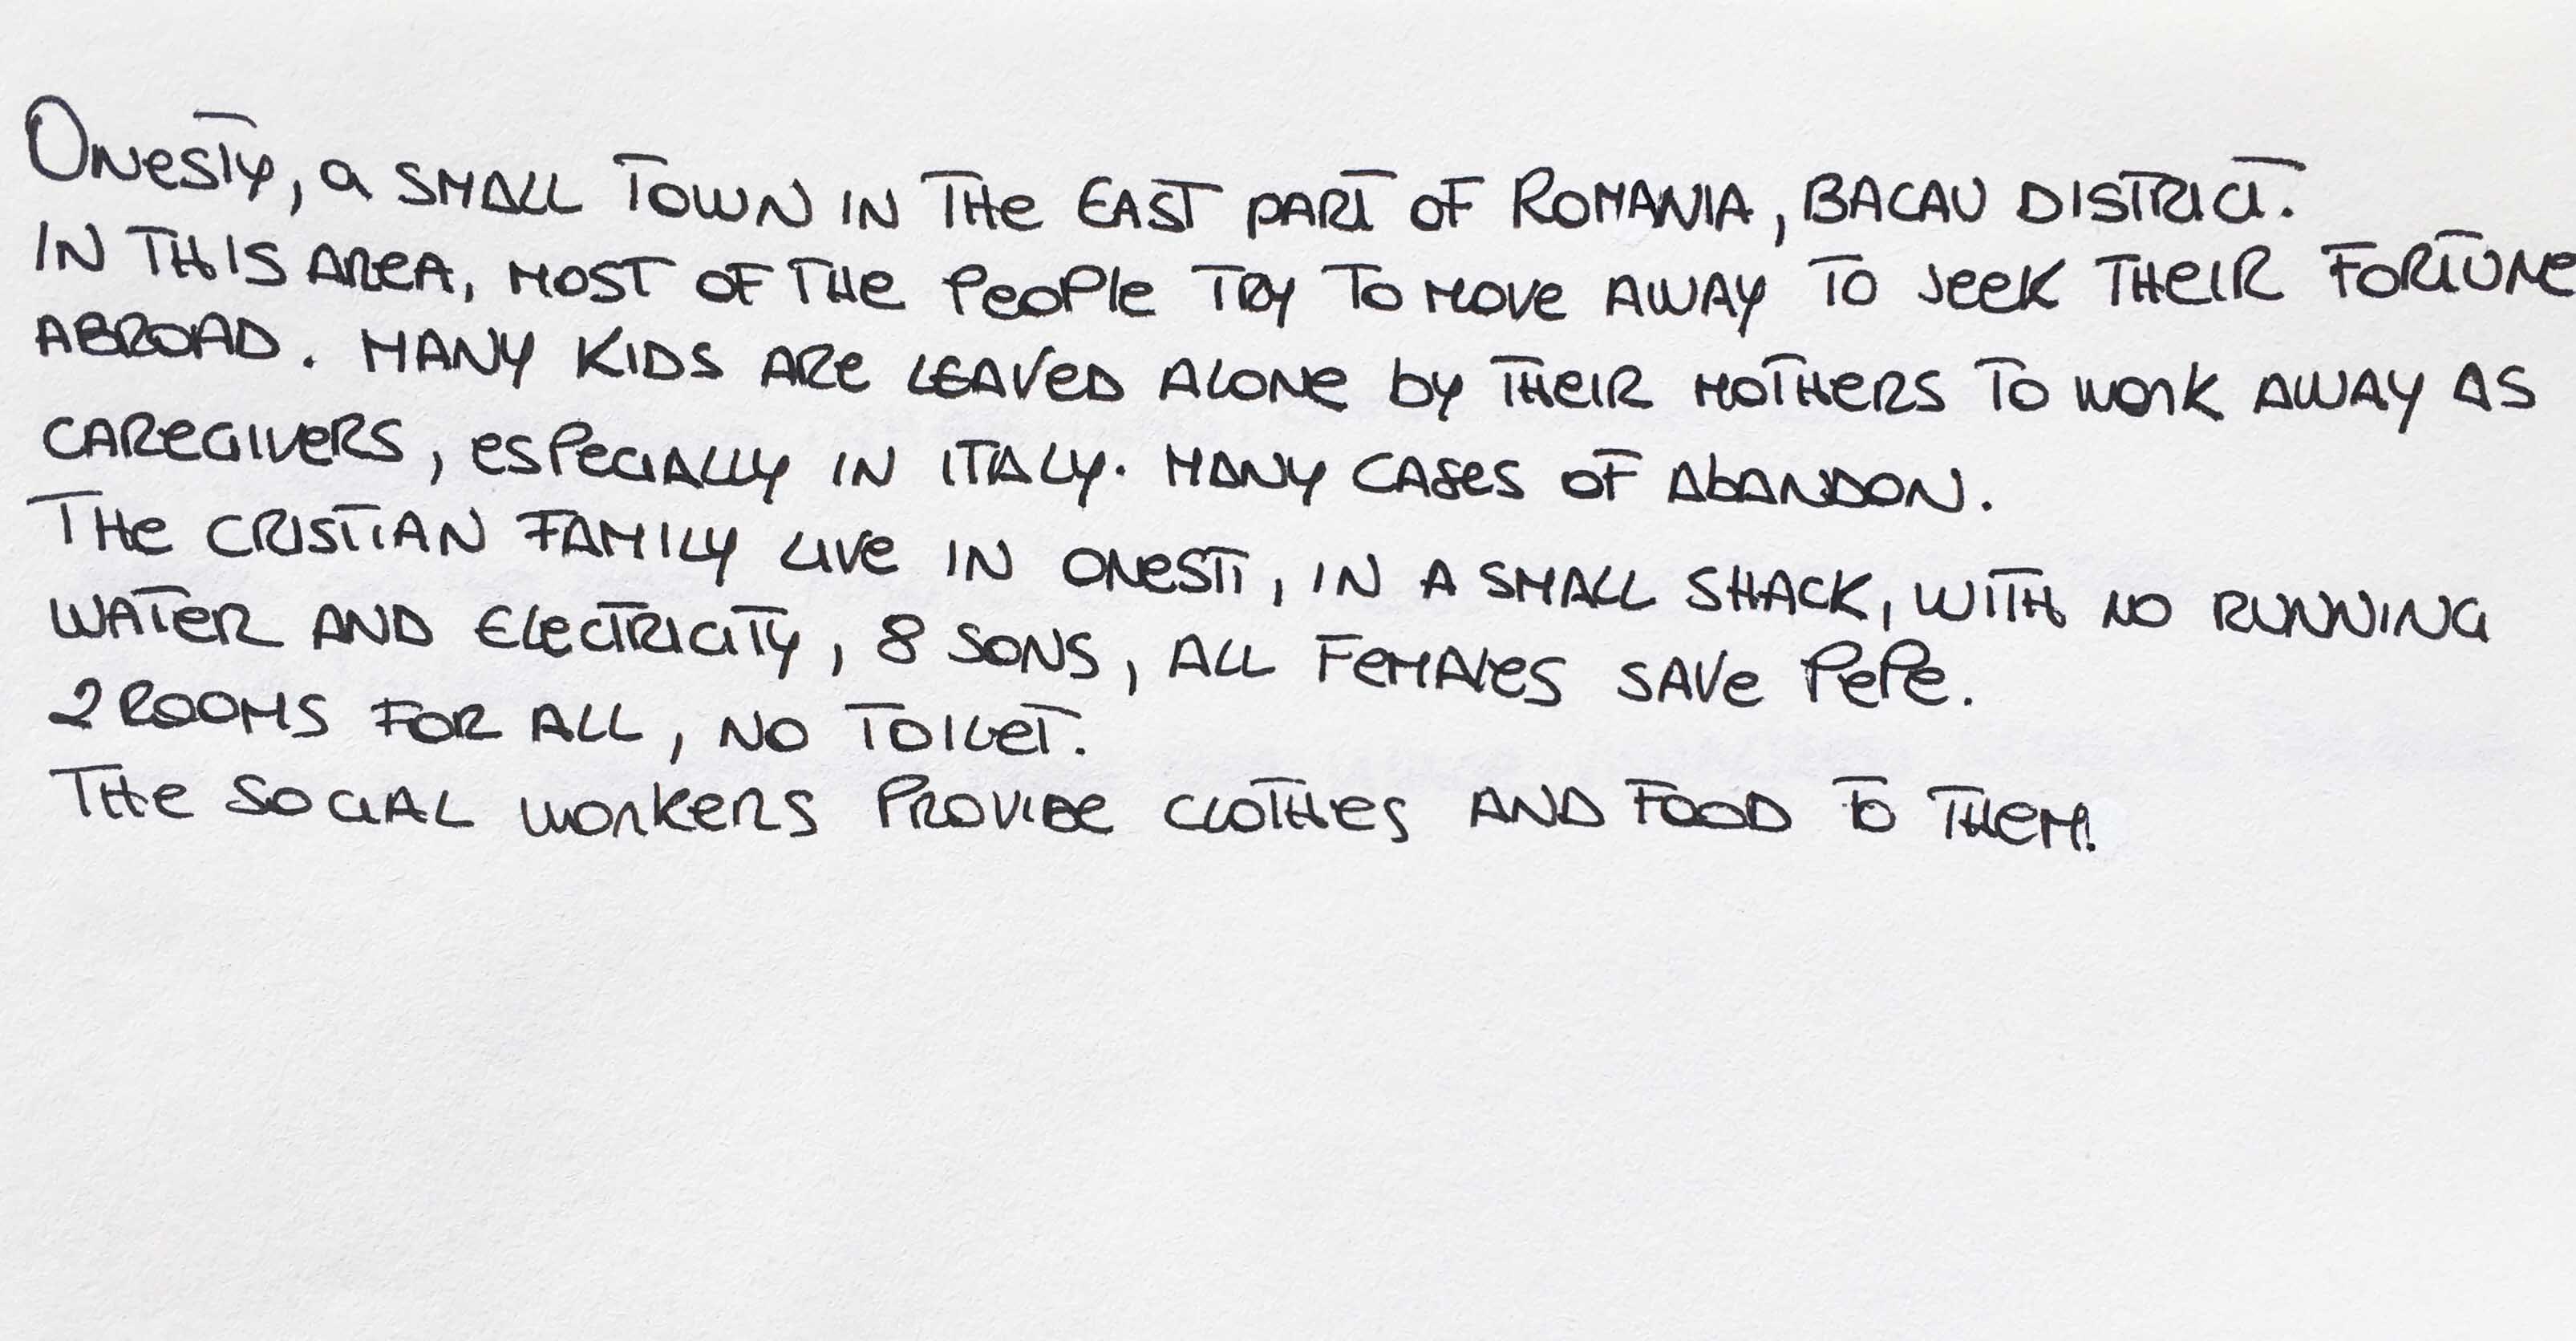 Onesty, a SMALL TOWN IN THe EAST PART OF ROMANIA, BACAU DISTRICT.
IN THIS AReA, MOST OF THe PeoPle TRY TO MOVe AWAY TO seeK THeIR FORTUNe
ABROAD. MANY KIDS ARe LEAVeD ALONe by THeIR MOTHeRS TO work AWAY AS
CAReGIVeRS, esPeCIALLY IN ITALY. MANY CASes OF AbANDON.
THe CRISTIAN FAMILY LIVe IN ONeSTi, IN A SMALL SHACK, WITH NO RUNNING
WATeR AND EleCTRICITY, 8 SONS, ALL FeMALeS SAVe PePe.
2 ROOMS FOR ALL, NO TOILeT.
THe SOCIAL workeRS PROVIDe CLOTHeS AND FOOD TO THeM.